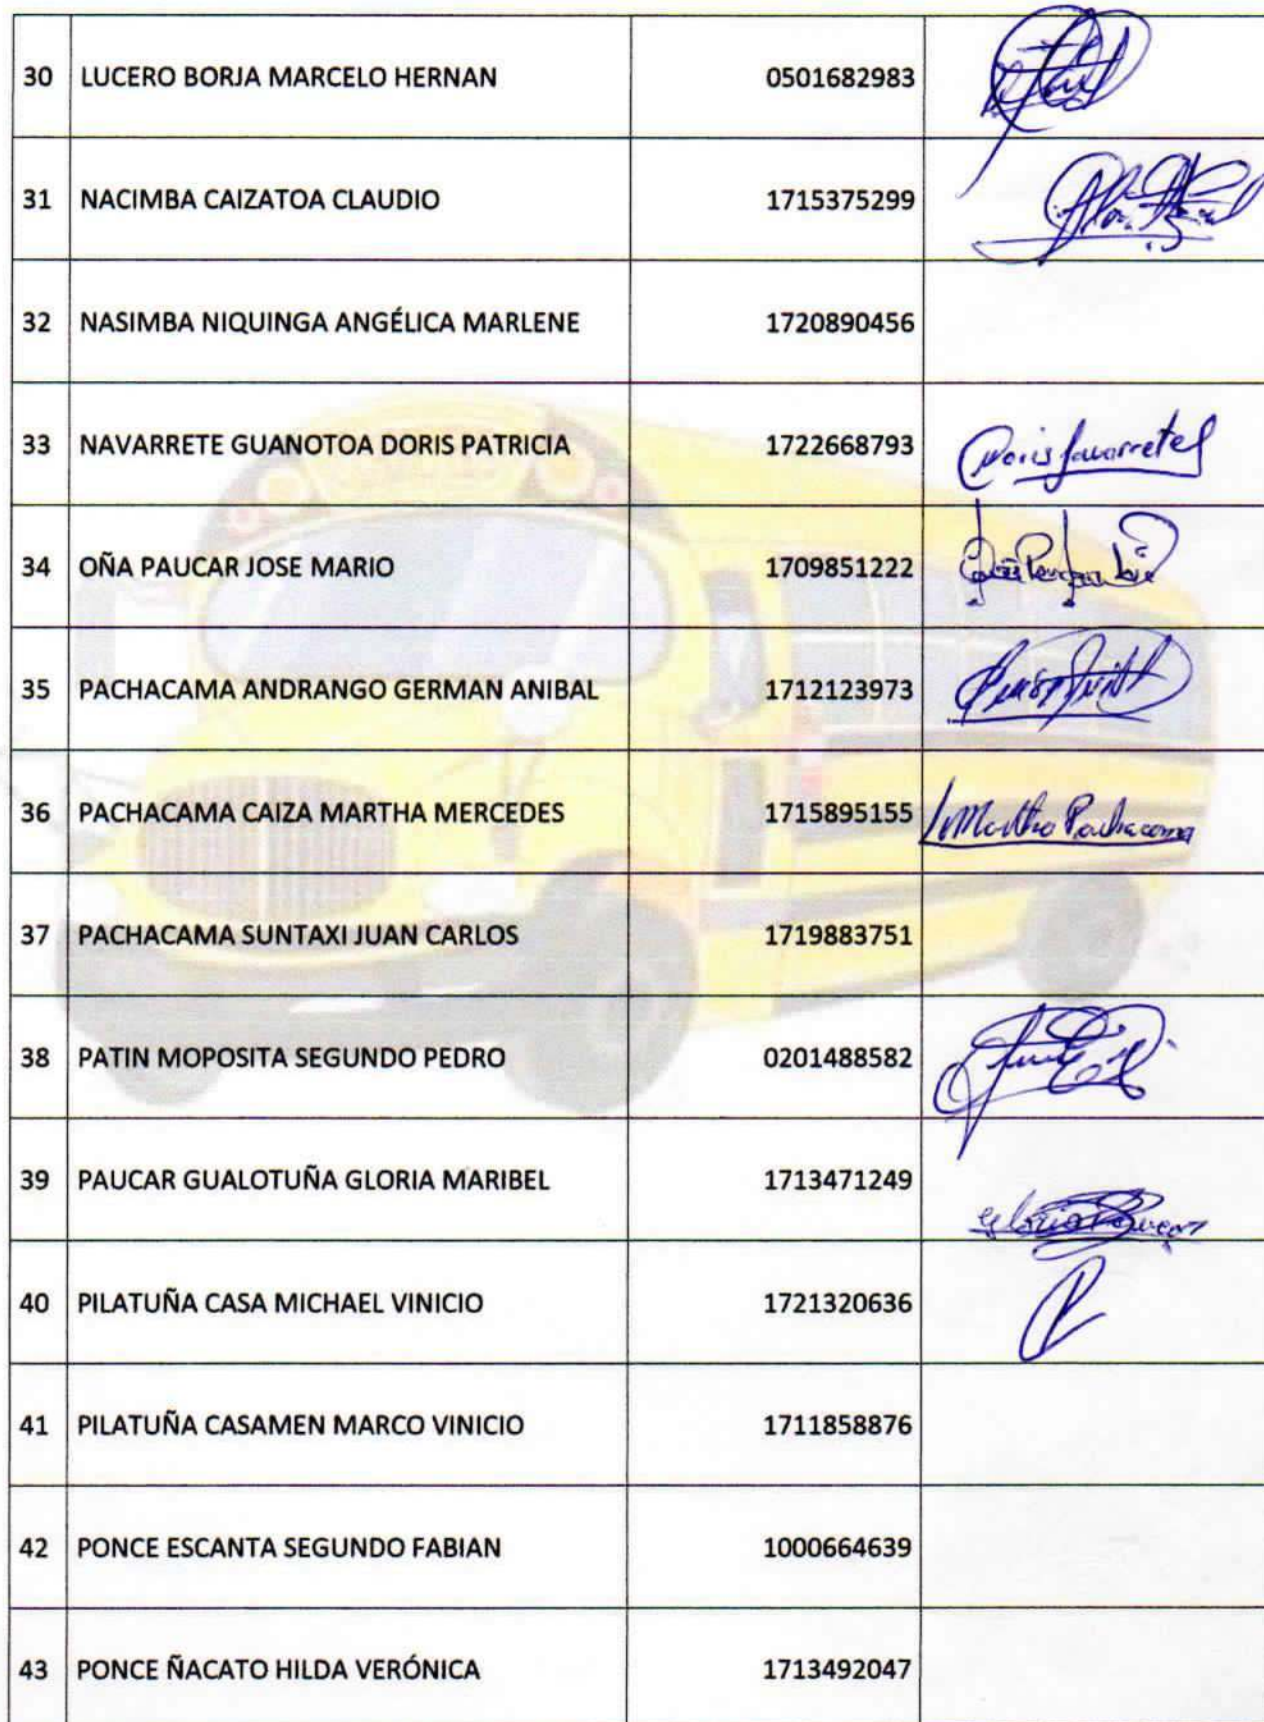 30 LUCERO BORJA MARCELO HERNAN 0501682983
31 NACIMBA CAIZATOA CLAUDIO 1715375299
32 NASIMBA NIQUINGA ANGÉLICA MARLENE 1720890456
33 NAVARRETE GUANOTOA DORIS PATRICIA 1722668793
34 OÑA PAUCAR JOSE MARIO 1709851222
35 PACHACAMA ANDRANGO GERMAN ANIBAL 1712123973
36 PACHACAMA CAIZA MARTHA MERCEDES 1715895155 Martha Pachacama
37 PACHACAMA SUNTAXI JUAN CARLOS 1719883751
38 PATIN MOPOSITA SEGUNDO PEDRO 0201488582
39 PAUCAR GUALOTUÑA GLORIA MARIBEL 1713471249
40 PILATUÑA CASA MICHAEL VINICIO 1721320636
41 PILATUÑA CASAMEN MARCO VINICIO 1711858876
42 PONCE ESCANTA SEGUNDO FABIAN 1000664639
43 PONCE ÑACATO HILDA VERÓNICA 1713492047